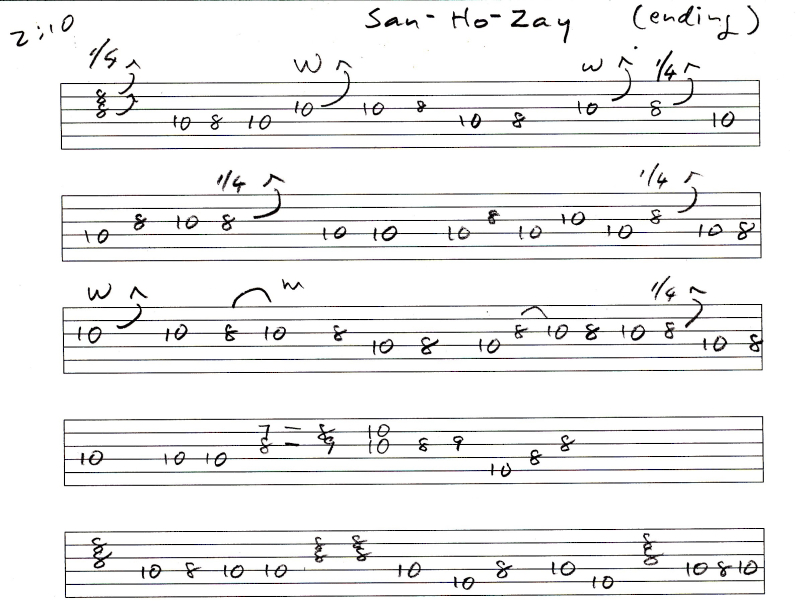 2:10 San-Ho-Zay (ending)
1/4 W W 1/4
8 8 10 8 10 10 10 8 10 8 10 8 10
1/4 1/4
10 8 10 8 10 10 10 8 10 10 10 8 10 8
W m 1/4
10 10 8 10 8 10 8 10 8 10 8 10 8 10 8
7 - 8 10
8 - 9 10 8 9
10 10 10 10 8 8
8 8 8 10 8 10 10 8 8 8 8 8 8 10 10 8 10 10 8 8 8 10 8 10